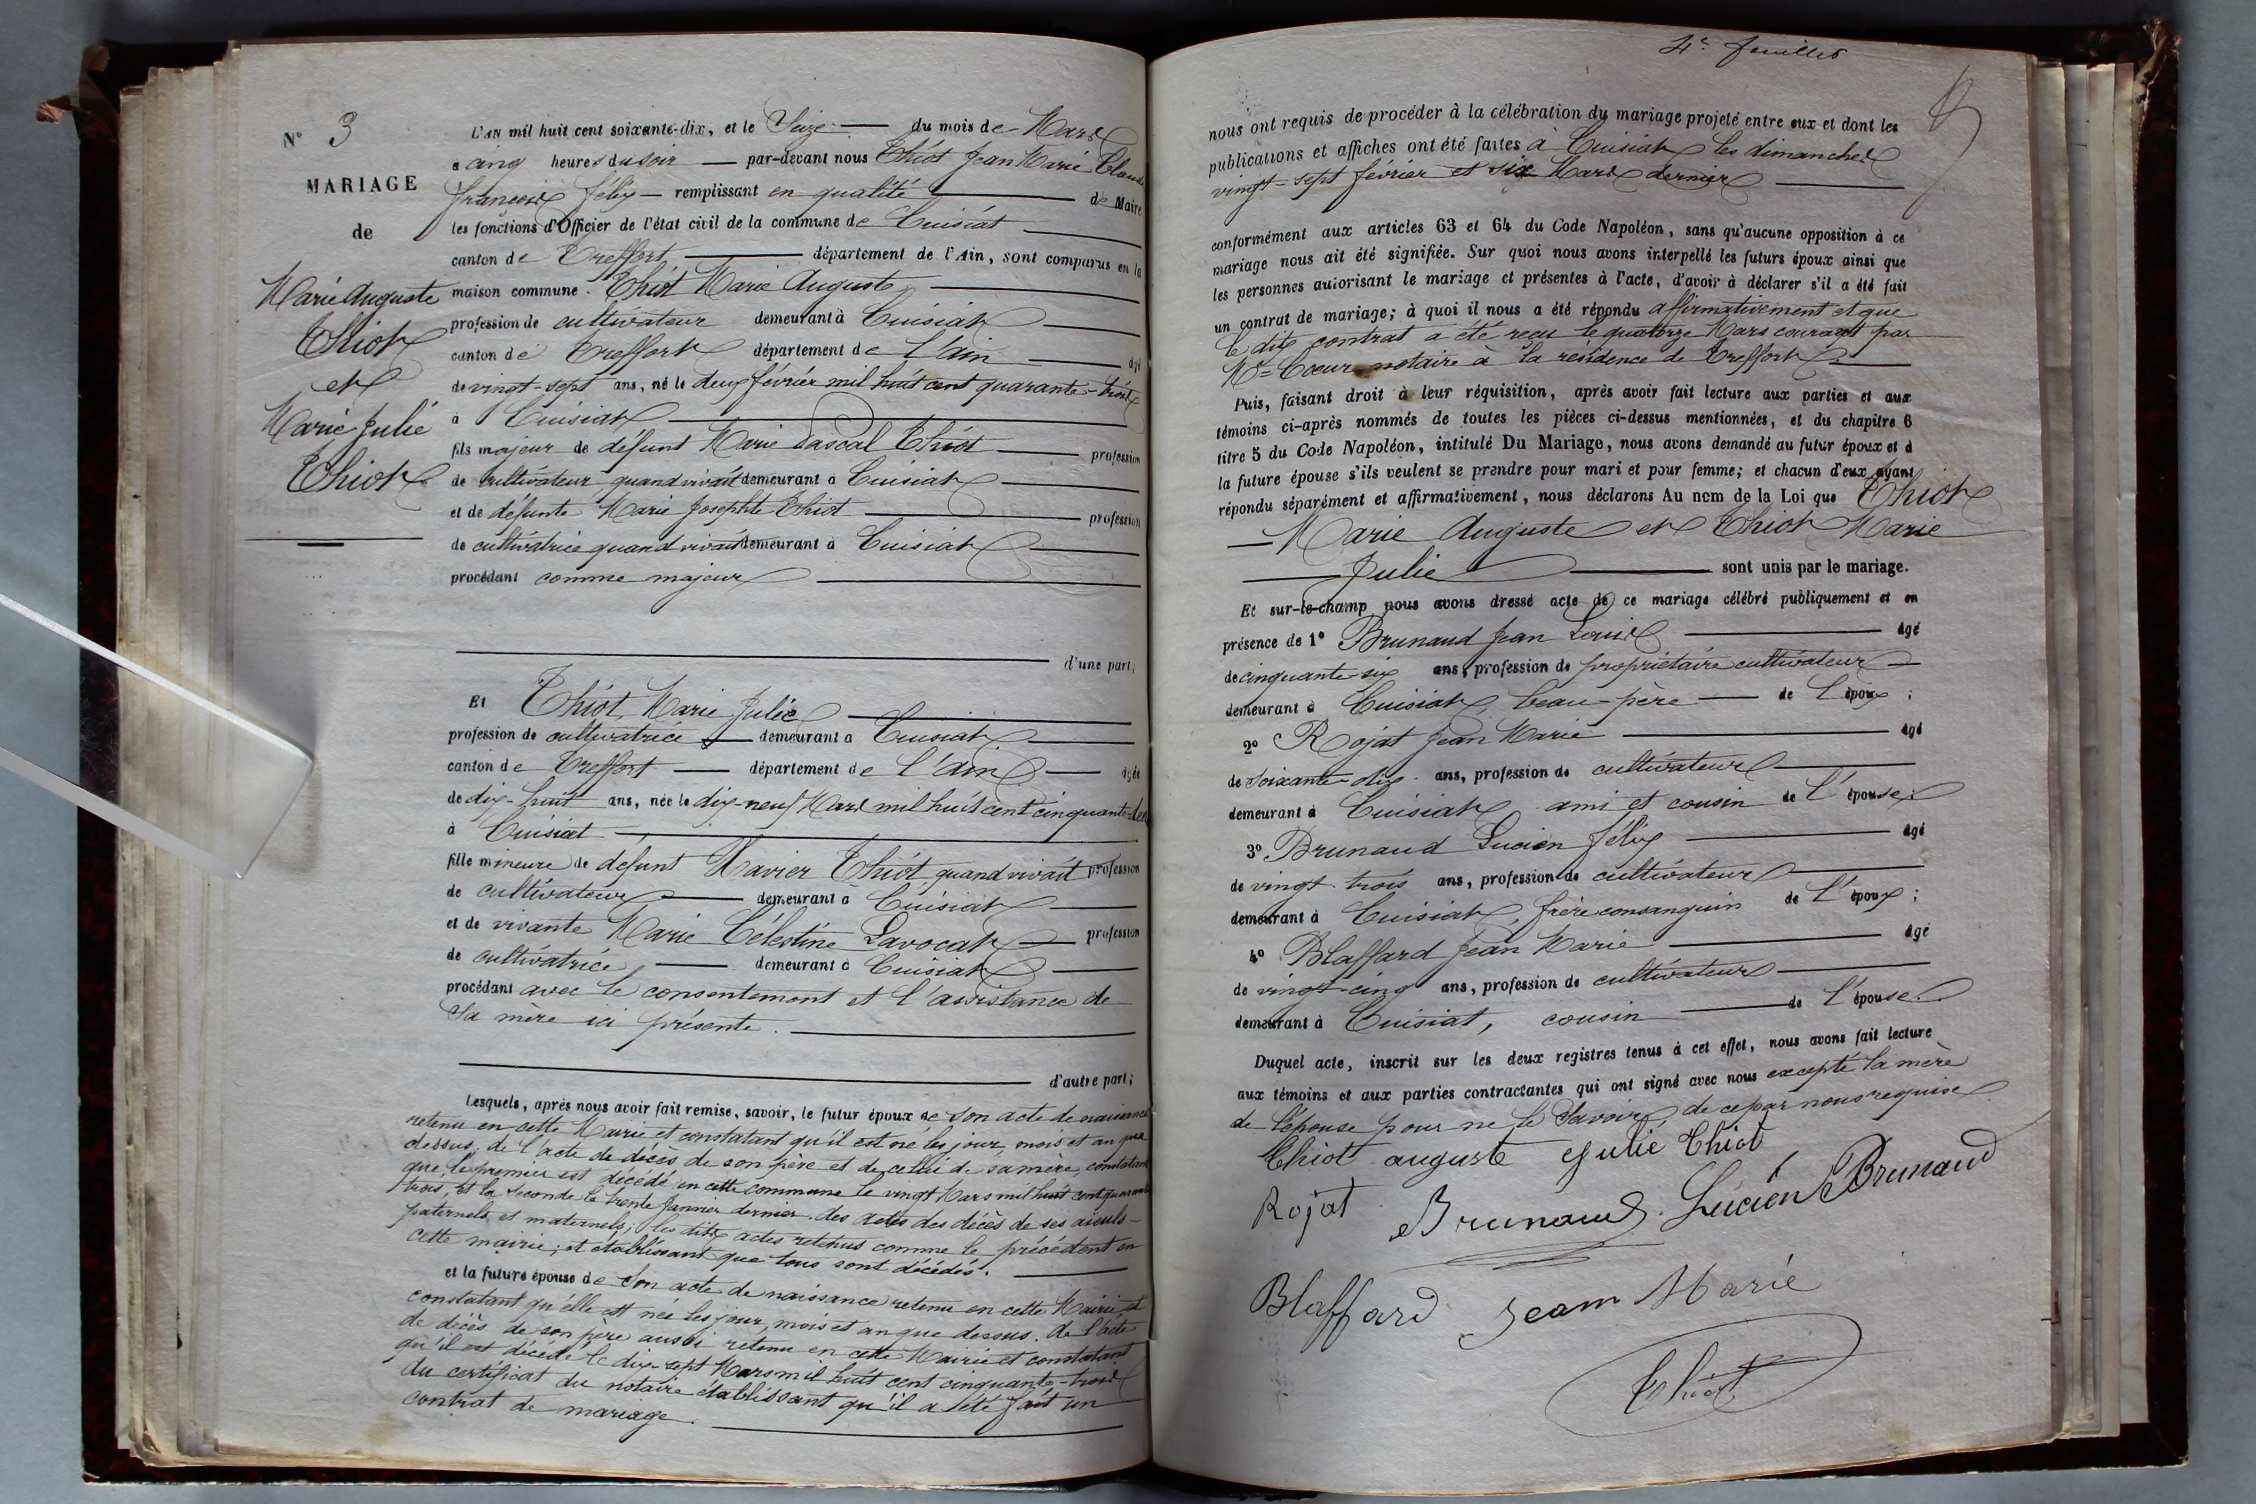 N° 3
MARIAGE
de
Marie Auguste
Thiot
et
Marie Julie
Thiot
L'AN mil huit cent soixante-dix, et le Seize du mois de Mars
a cinq heures du soir par-devant nous Thiot Jean Marie Claude
françois félix remplissant en qualité de Maire
les fonctions d'Officier de l'état civil de la commune de Cuisiat
canton de Treffort, département de l'Ain, sont comparus en la
maison commune. Thiot Marie Auguste,
profession de cultivateur demeurant à Cuisiat
canton de Treffort département de l'ain âgé
de vingt-sept ans, né le deux février mil huit cent quarante-trois
à Cuisiat
fils majeur de défunt Marie Pascal Thiot profession
de cultivateur quand vivait demeurant à Cuisiat
et de défunte Marie Josephte Thiot profession
de cultivatrice quand vivait demeurant à Cuisiat
procédant comme majeur
d'une part;
Et Thiot, Marie Julie
profession de cultivatrice demeurant a Cuisiat
canton de Treffort département de l'ain âgée
de dix-huit ans, née le dix-neuf Mars mil huit cent cinquante-deux
à Cuisiat
fille mineure de défunt Xavier Thiot quand vivait profession
de cultivateur demeurant à Cuisiat
et de vivante Marie Célestine Lavocat profession
de cultivatrice, demeurant à Cuisiat
procédant avec le consentement et l'assistance de
sa mère ici présente.
d'autre part;
Lesquels, après nous avoir fait remise, savoir, le futur époux de son acte de naissance
retenu en cette Mairie et constatant qu'il est né les jour, mois et an que
dessus; de l'acte de décès de son père et de celui de sa mère, constatant
que le premier est décédé en cette commune le vingt Mars mil huit cent quarante
trois, et la seconde le trente Janvier dernier. des actes des décès de ses aïeuls
paternels et maternels; les dits actes retenus comme le précédent en
cette mairie; et établissant que tous sont décédés.
et la future épouse de son acte de naissance retenu en cette Mairie et
constatant qu'elle est née les jour, mois et an que dessus. de l'acte
de décès de son père aussi retenu en cette Mairie et constatant
qu'il est décédé le dix-sept Mars mil huit cent cinquante-trois
du certificat du notaire établissant qu'il a été fait un
contrat de mariage.
4e feuillet
nous ont requis de procéder à la célébration du mariage projeté entre eux et dont les
publications et affiches ont été faites à Cuisiat les dimanches
vingt-sept février et six Mars dernier
conformément aux articles 63 et 64 du Code Napoléon, sans qu'aucune opposition à ce
mariage nous ait été signifiée. Sur quoi nous avons interpellé les futurs époux ainsi que
les personnes autorisant le mariage et présentes à l'acte, d'avoir à déclarer s'il a été fait
un contrat de mariage; à quoi il nous a été répondu affirmativement et que
le dit contrat a été reçu le quatorze Mars courant par
Me Cœur notaire à la résidence de Treffort
Puis, faisant droit à leur réquisition, après avoir fait lecture aux parties et aux
témoins ci-après nommés de toutes les pièces ci-dessus mentionnées, et du chapitre 6
titre 5 du Code Napoléon, intitulé Du Mariage, nous avons demandé au futur époux et à
la future épouse s'ils veulent se prendre pour mari et pour femme; et chacun d'eux ayant
répondu séparément et affirmativement, nous déclarons Au nom de la Loi que Thiot
Marie Auguste et Thiot Marie
Julie sont unis par le mariage.
Et sur-le-champ nous avons dressé acte de ce mariage célébré publiquement et en
présence de 1° Brunaud Jean Louis âgé
de cinquante-six ans, profession de propriétaire cultivateur
demeurant à Cuisiat, beau-père de l'époux;
2° Rojat Jean Marie âgé
de soixante-dix ans, profession de cultivateur
demeurant à Cuisiat, ami et cousin de l'épouse;
3° Brunaud Lucien félix âgé
de vingt-trois ans, profession de cultivateur
demeurant à Cuisiat, frère consanguin de l'époux;
4° Blaffard Jean Marie âgé
de vingt-cinq ans, profession de cultivateur
demeurant à Cuisiat, cousin de l'épouse.
Duquel acte, inscrit sur les deux registres tenus à cet effet, nous avons fait lecture
aux témoins et aux parties contractantes qui ont signé avec nous excepté la mère
de l'épouse pour ne le savoir, de ce par nous requise.
Thiot auguste Julie Thiot
Rojat Brunaud Lucien Brunaud
Blaffard Jean Marie
Thiot